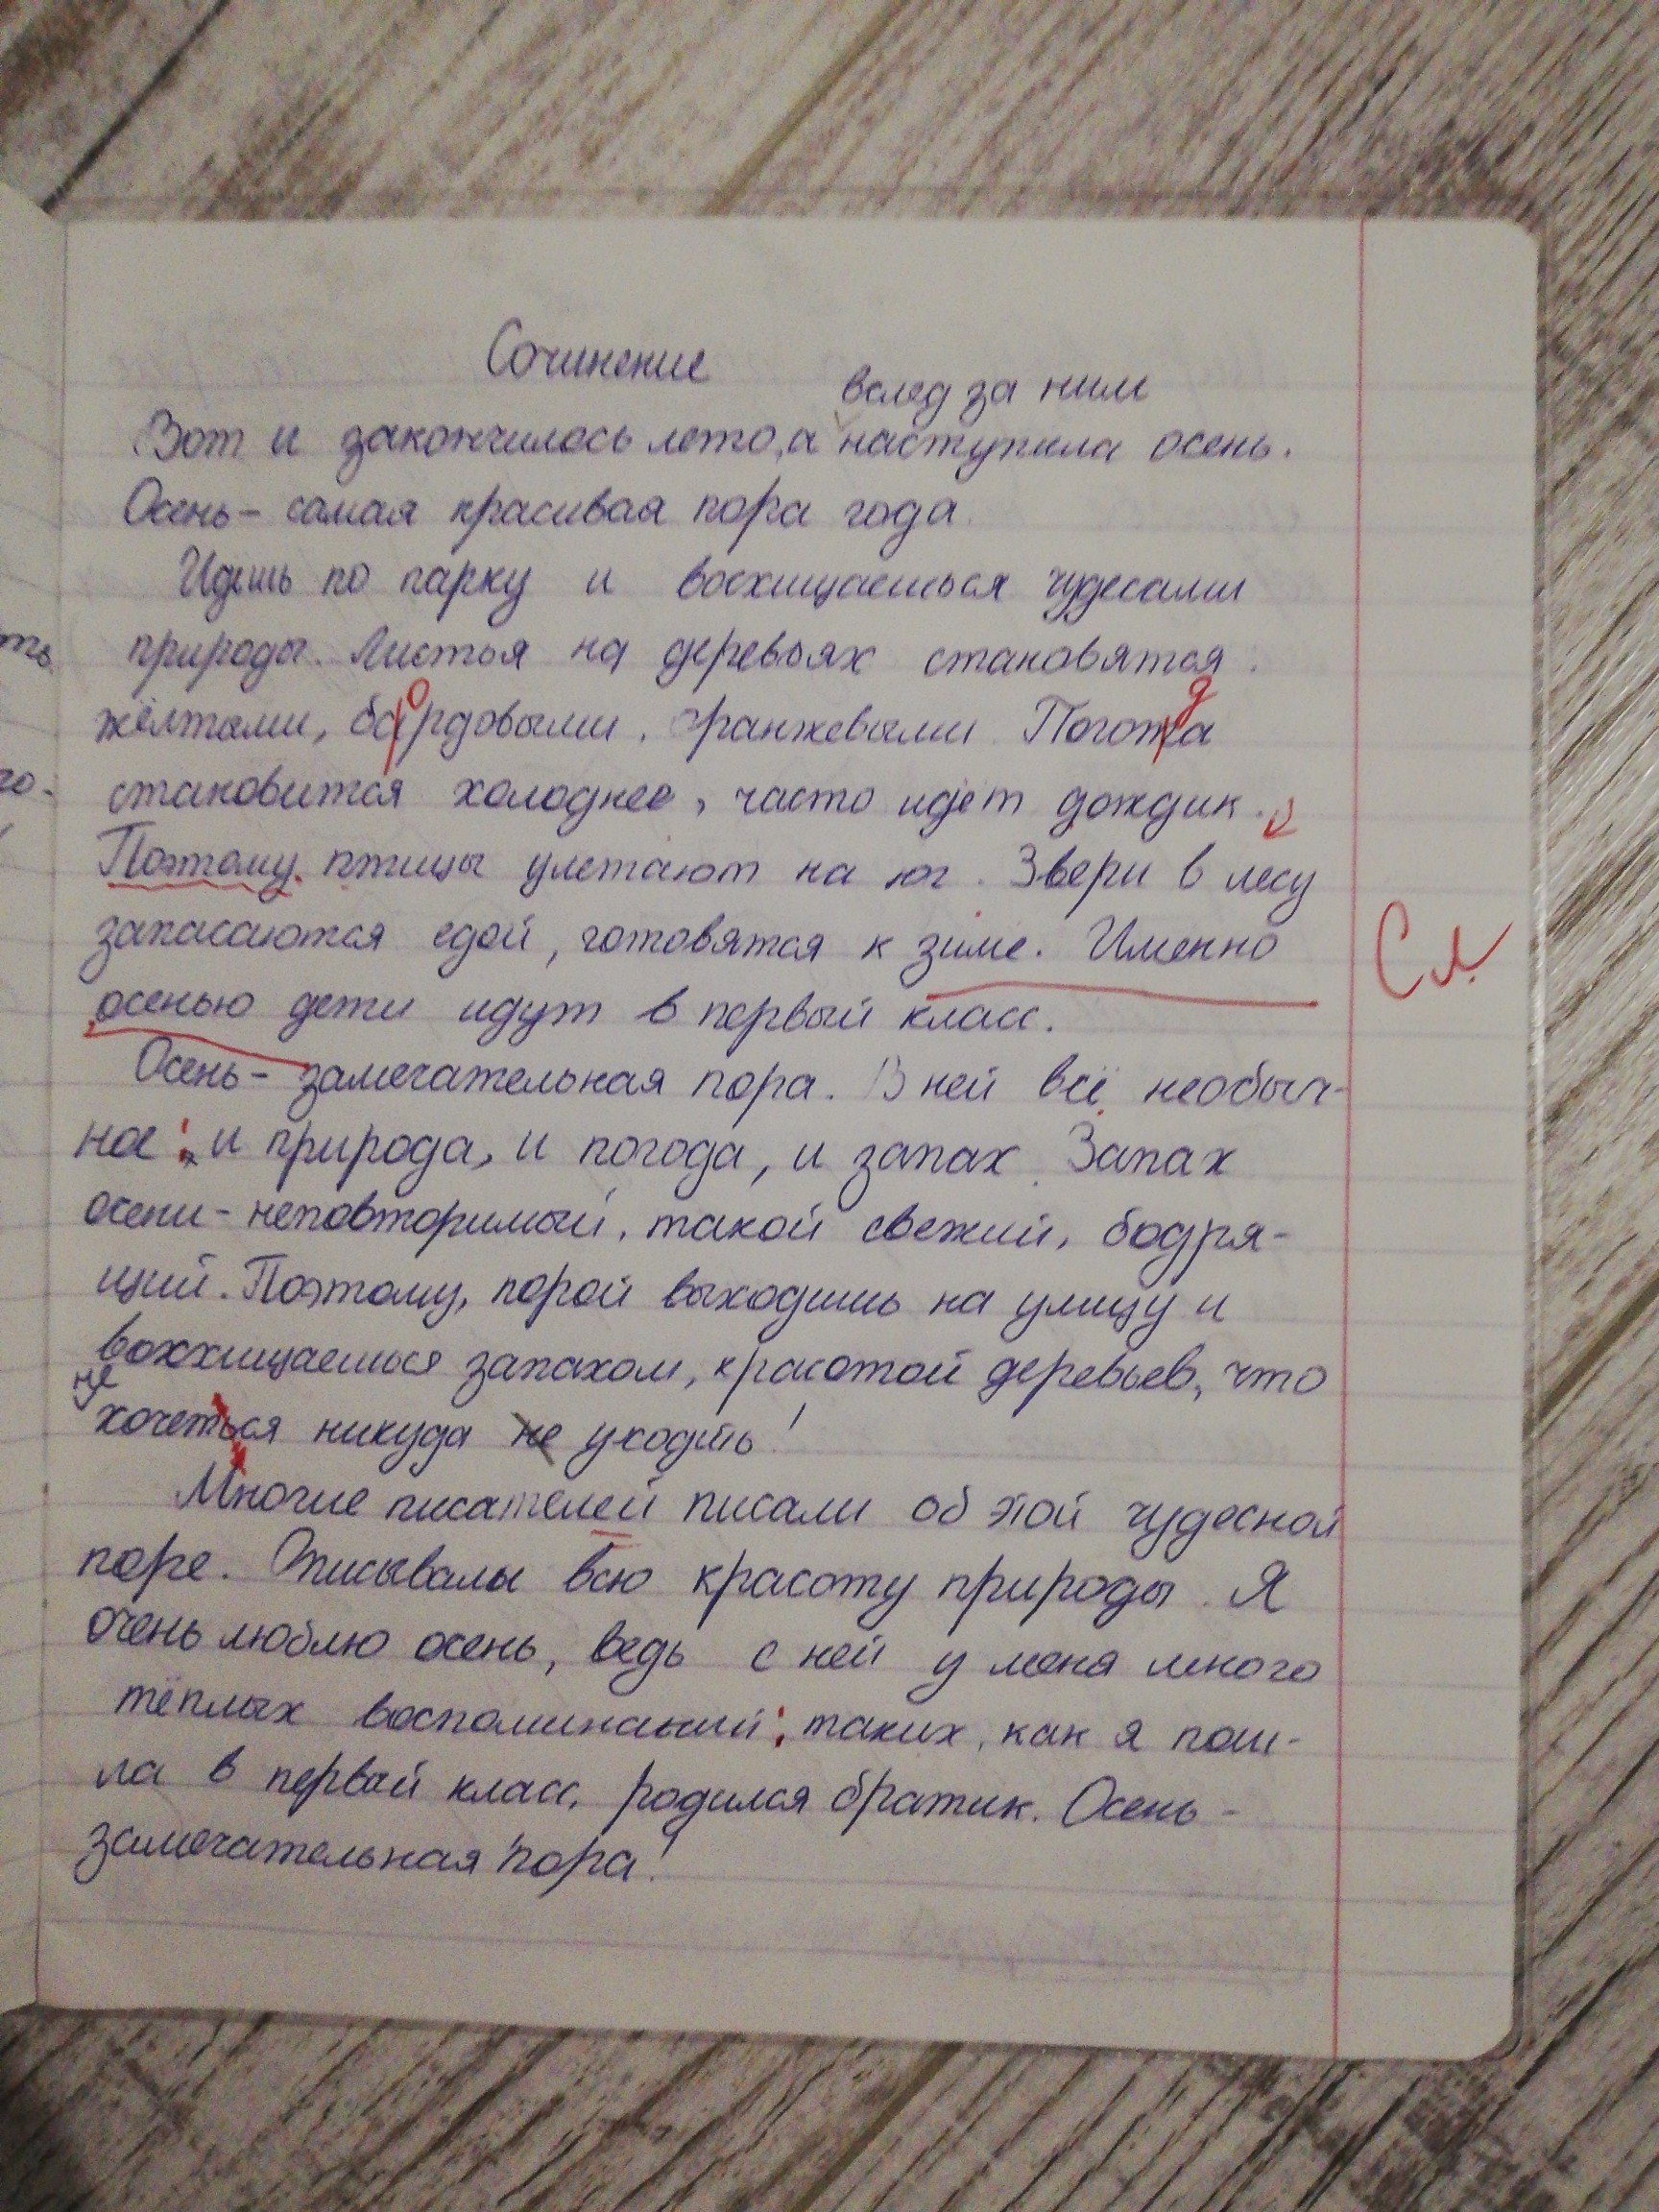 Сочинение
вслед за ним
Вот и закончилось лето, а наступила осень.
Осень - самая красивая пора года.
Идёшь по парку и восхищаешься чудесами
природы. Листья на деревьях становятся
жёлтыми, бардовыми, оранжевыми. Погожа
становится холоднее, часто идёт дождик.
Поэтому птицы улетают на юг. Звери в лесу
запасаются едой, готовятся к зиме. Именно
осенью дети идут в первый класс.
Сл
Осень - замечательная пора. В ней всё необыч-
ное: и природа, и погода, и запах. Запах
осени - неповторимый, такой свежий, бодря-
щий. Поэтому, порой выходишь на улицу и
восхищаешься запахом, красотой деревьев, что
не
хочеться никуда не уходить!
Многие писателей писали об этой чудесной
поре. Описывалы всю красоту природы. Я
очень люблю осень, ведь с ней у меня много
тёплых воспоминаний: таких, как я пош-
ла в первый класс, родился братик. Осень -
замечательная пора!
ть
го.